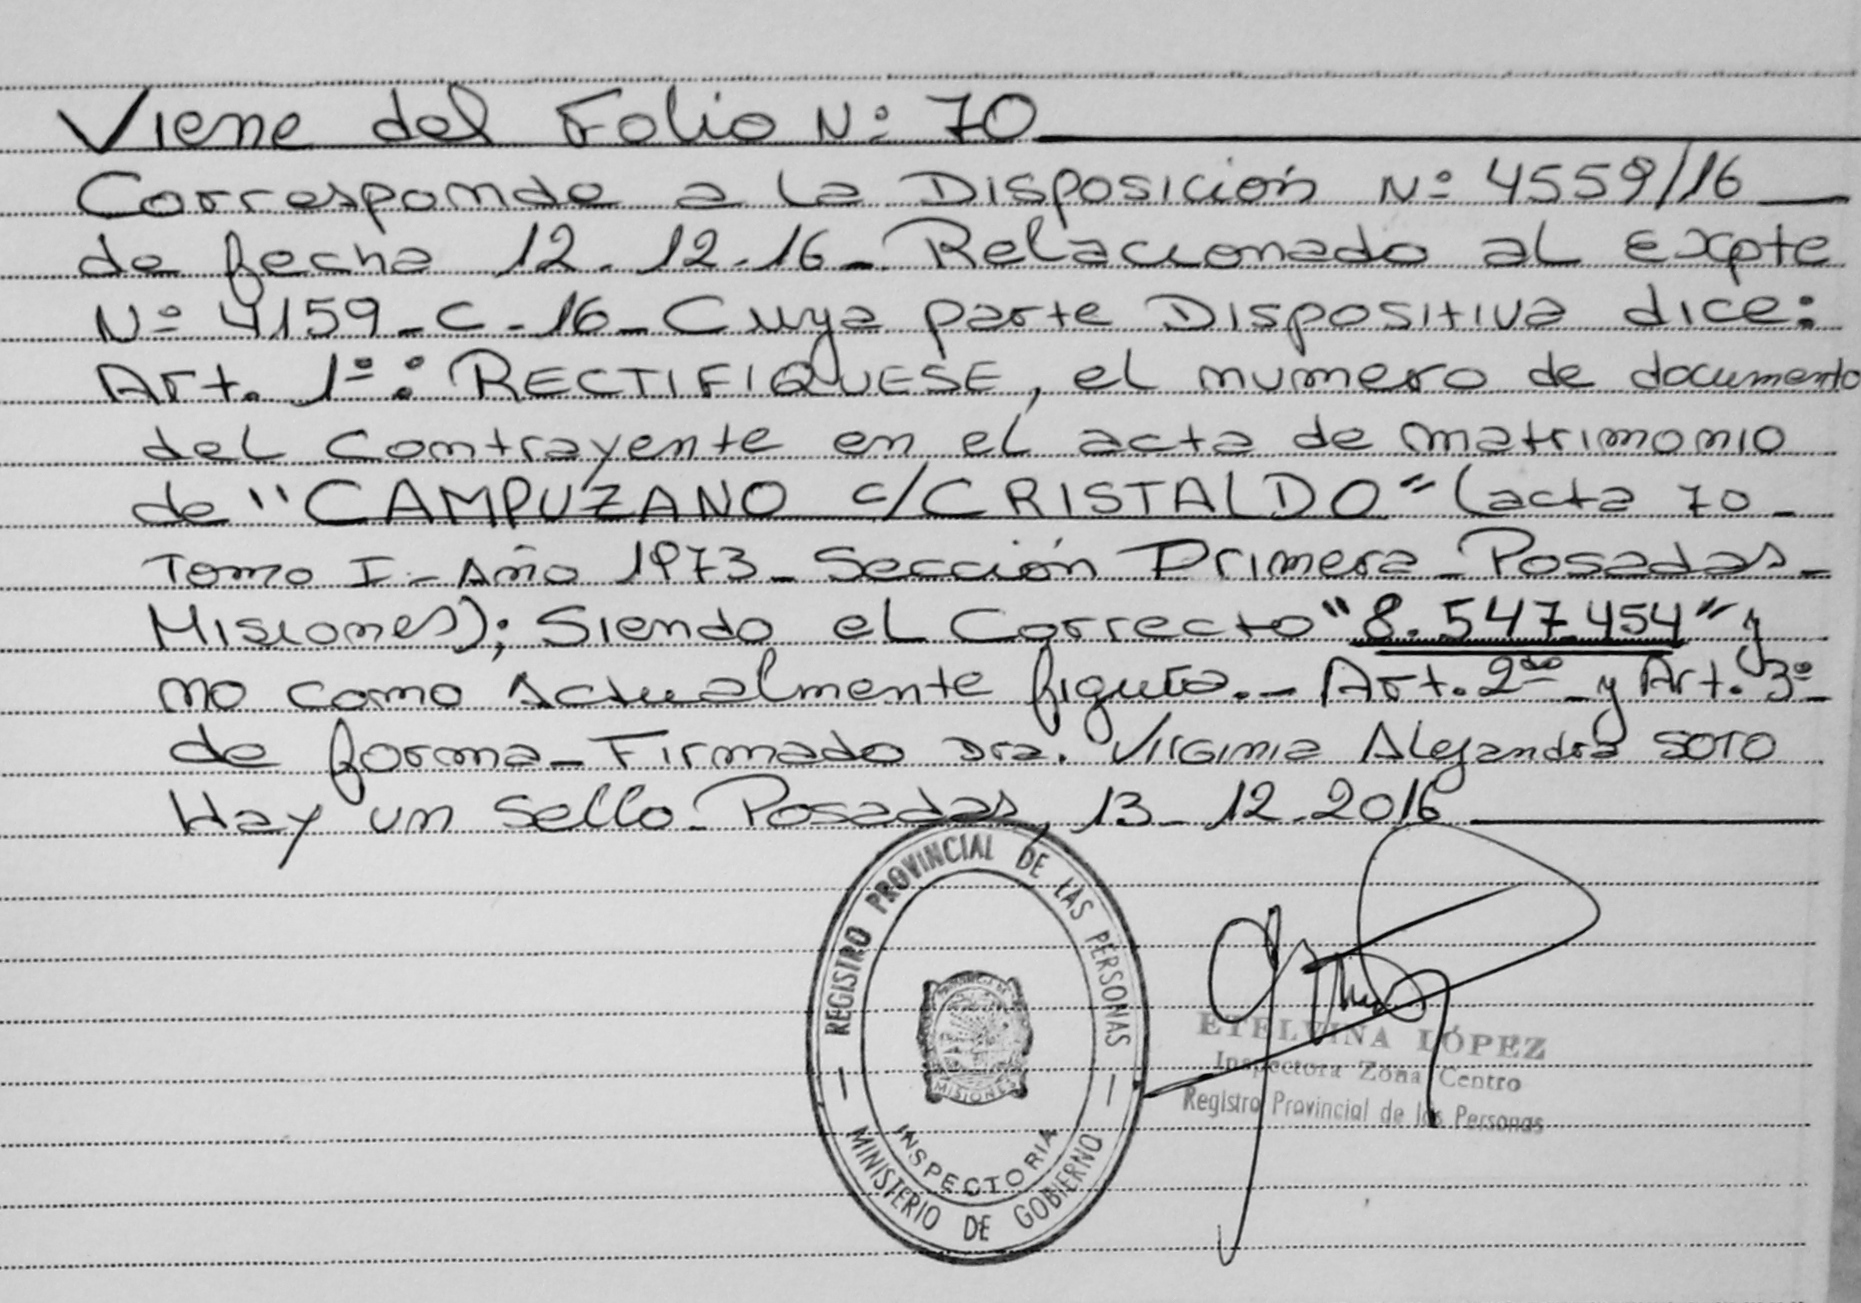 Viene del Folio Nº 70
Corresponde a la Disposición Nº 4559/16
de fecha 12.12.16_Relacionado al Expte
Nº 4159_C_16_Cuya parte Dispositiva dice:
Art. 1º: RECTIFIQUESE, el numero de documento
del contrayente en el acta de matrimonio
de "CAMPUZANO c/CRISTALDO" (acta 70_
Tomo I_Año 1973_Sección Primera_Posadas_
Misiones); Siendo el Correcto "8.547.454" y
no como actualmente figura._ Art. 2do y Art. 3º_
de forma_Firmado Dra. Virginia Alejandra SOTO
Hay un sello_Posadas, 13_12.2016
REGISTRO PROVINCIAL DE LAS PERSONAS
PROVINCIA DE
MISIONES
INSPECTORIA
MINISTERIO DE GOBIERNO
ETELVINA LÓPEZ
Inspectora Zona Centro
Registro Provincial de las Personas